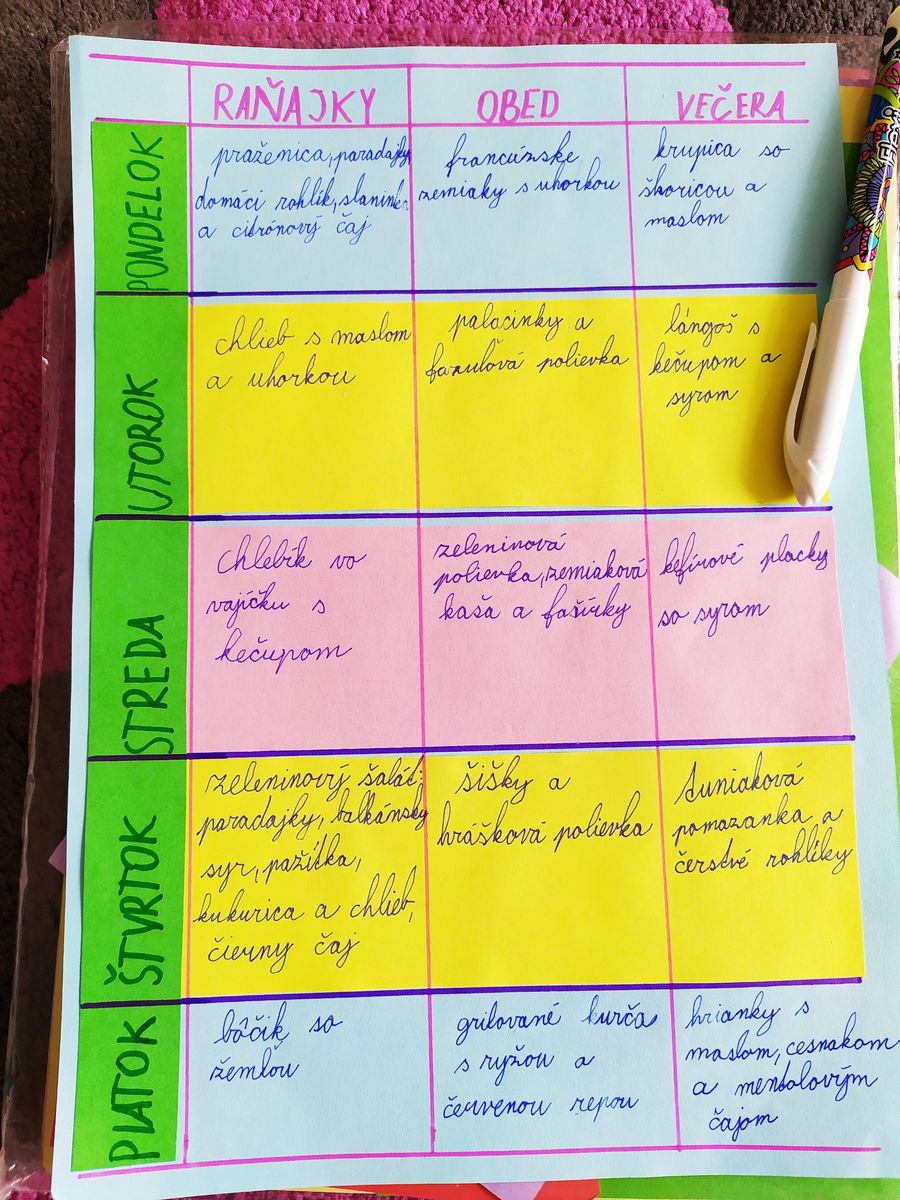 RAŇAJKY OBED VEČERA
PONDELOK
praženica, paradajky,
domáci rohlík, slaninka
a citrónový čaj
francúzske
zemiaky s uhorkou
krupica so
škoricou a
maslom
UTOROK
chlieb s maslom
a uhorkou
palacinky a
fazuľová polievka
lángoš s
kečupom a
syrom
STREDA
Chlebík vo
vajíčku s
kečupom
zeleninová
polievka, zemiaková
kaša a fašírky
kefírové placky
so syrom
ŠTVRTOK
zeleninový šalát:
paradajky, balkánsky
syr, pažítka,
kukurica a chlieb,
čierny čaj
šišky a
hrášková polievka
tuniaková
pomazanka a
čerstvé rohlíky
PIATOK
bôčik so
žemľou
grilované kurča
s ryžou a
červenou repou
hrianky s
maslom, cesnakom
a mentolovým
čajom